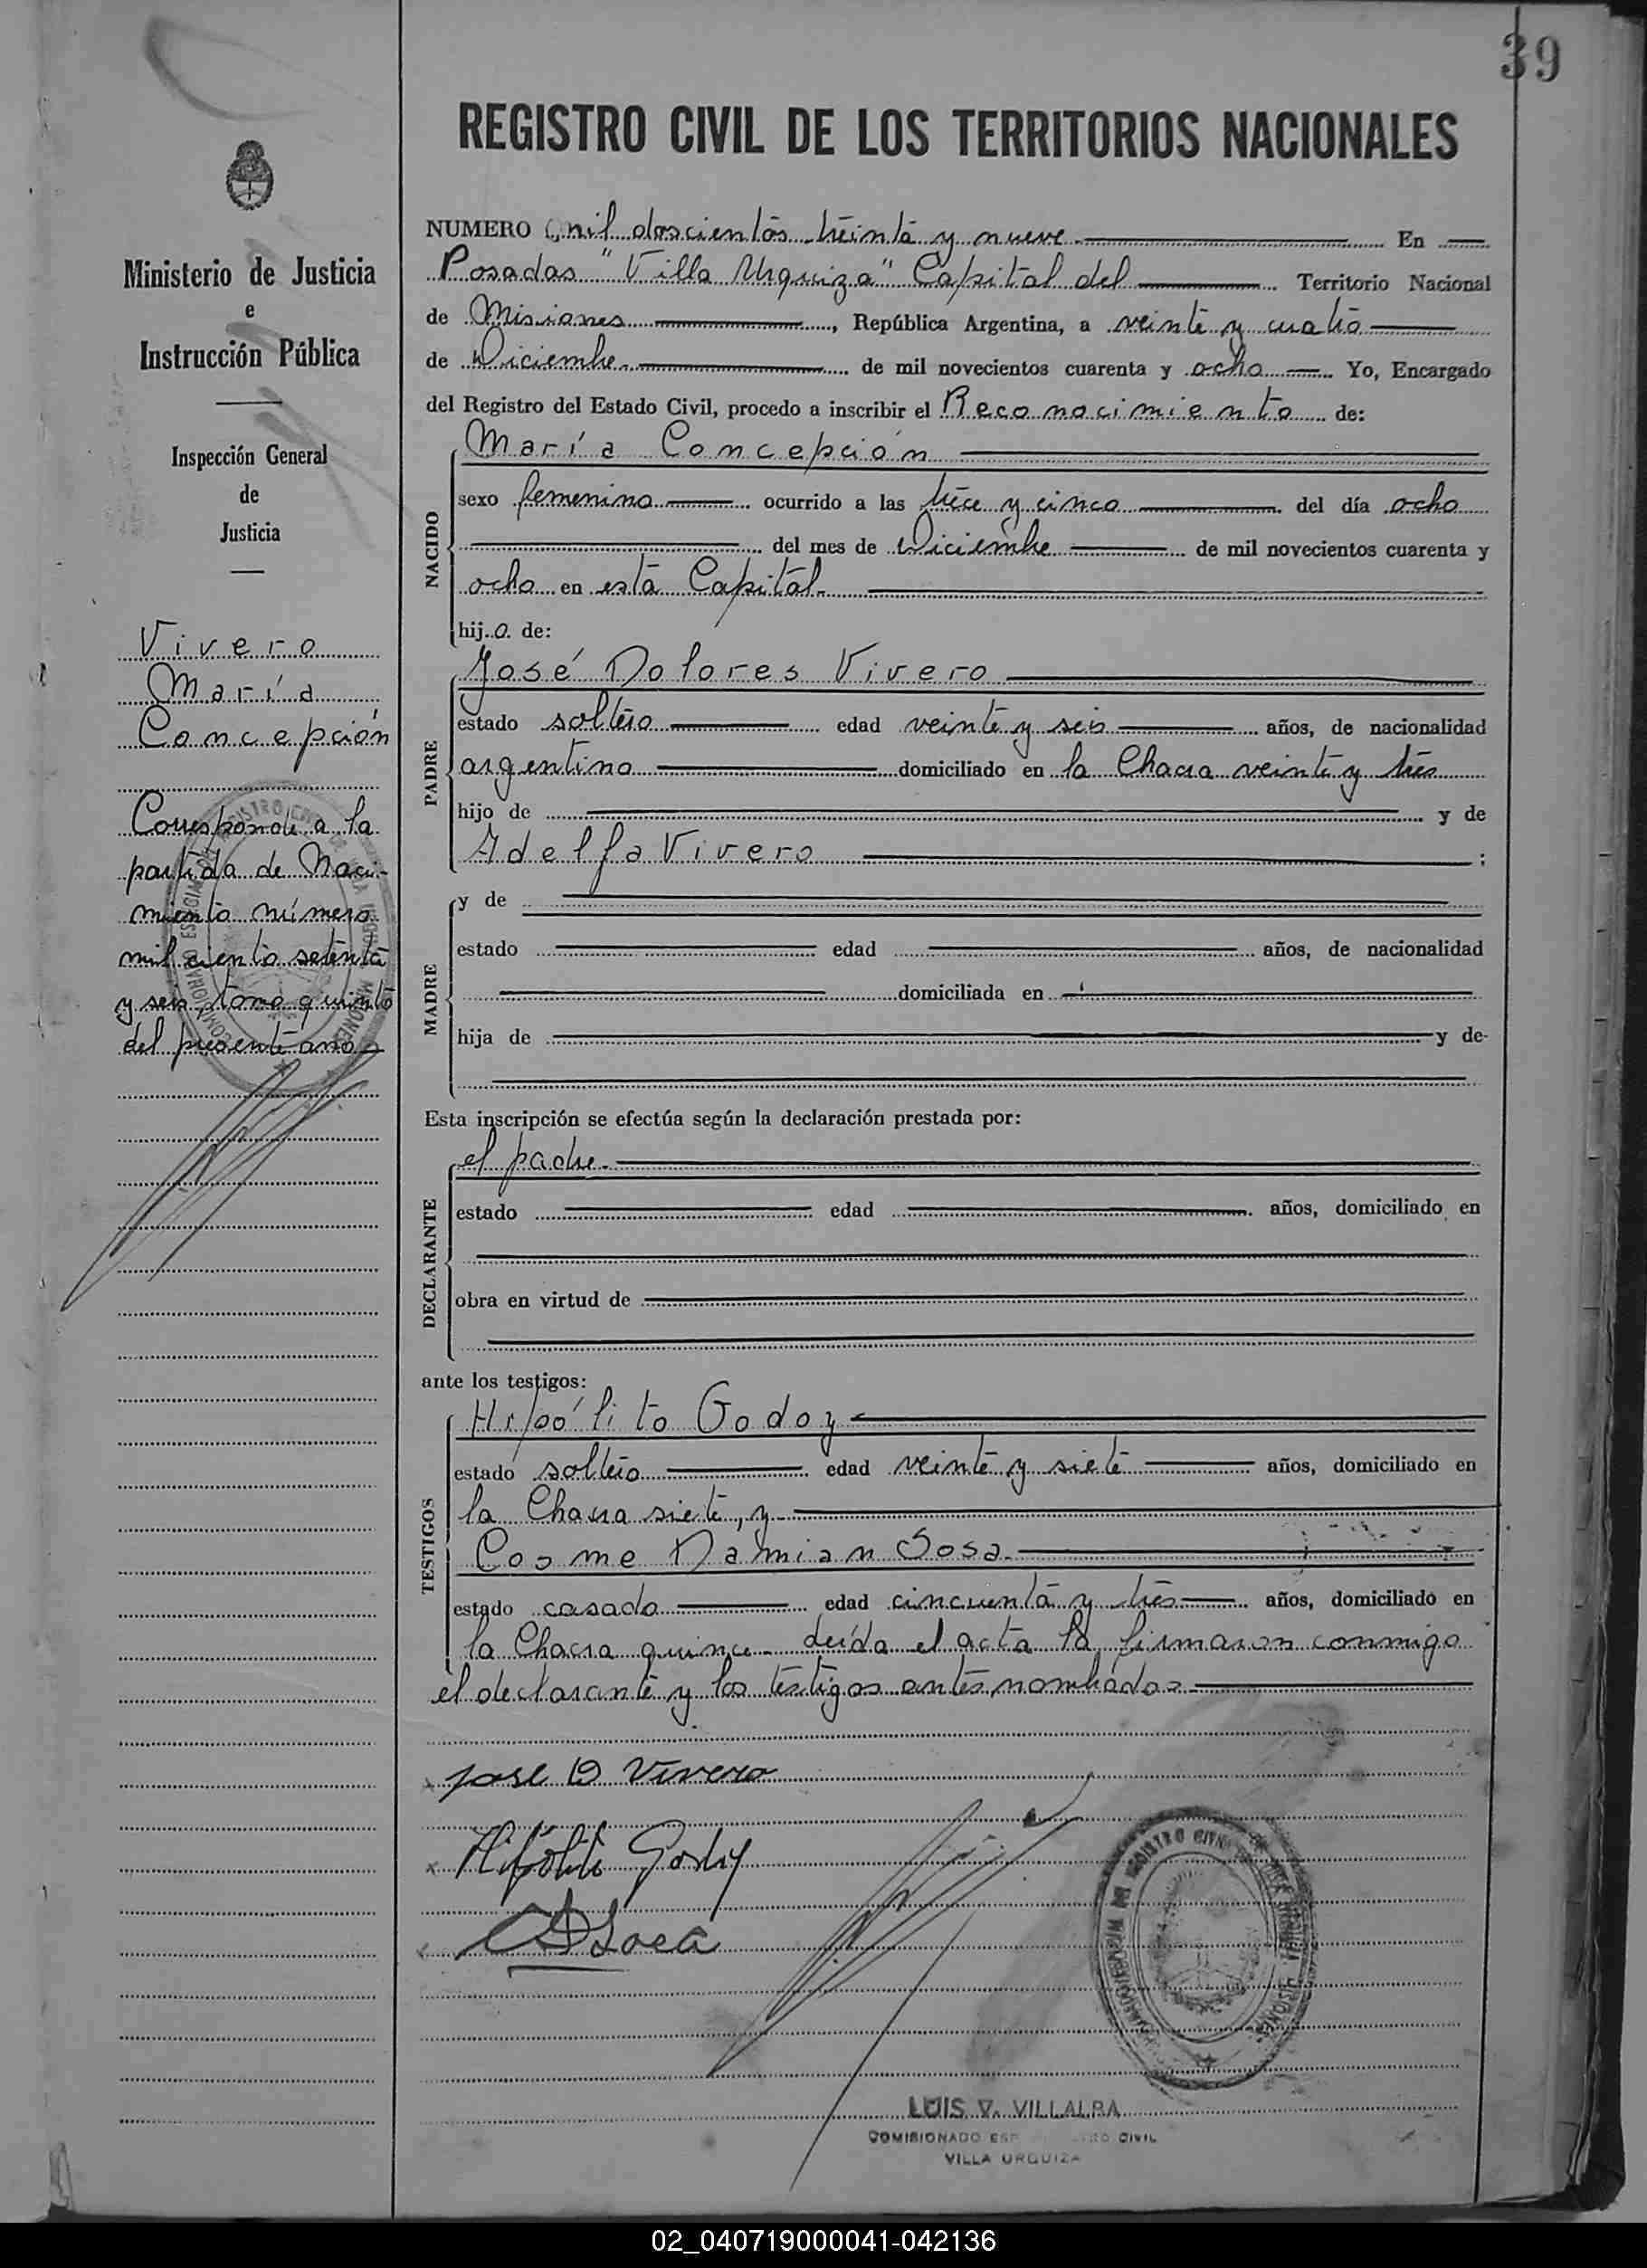 39
REGISTRO CIVIL DE LOS TERRITORIOS NACIONALES
Ministerio de Justicia
e
Instrucción Pública
Inspección General
de
Justicia
Vivero
María
Concepción
Corresponde a la
partida de Naci-
miento número
mil ciento setenta
y seis, tomo quinto
del presente año
NUMERO mil doscientos treinta y nueve En
Posadas "Villa Urquiza" Capital del Territorio Nacional
de Misiones, República Argentina, a veinte y cuatro
de Diciembre de mil novecientos cuarenta y ocho Yo, Encargado
del Registro del Estado Civil, procedo a inscribir el Reconocimiento de:
NACIDO
María Concepción
sexo femenino ocurrido a las trece y cinco del día ocho
del mes de Diciembre de mil novecientos cuarenta y
ocho en esta Capital.
hija de:
PADRE
José Dolores Vivero
estado soltero edad veinte y seis años, de nacionalidad
argentino domiciliado en la Chacra veinte y tres
hijo de y de
Adelfa Vivero ;
MADRE
y de
estado edad años, de nacionalidad
domiciliada en
hija de y de
Esta inscripción se efectúa según la declaración prestada por:
DECLARANTE
el padre.
estado edad años, domiciliado en
obra en virtud de
ante los testigos:
TESTIGOS
Hipólito Godoy
estado soltero edad veinte y siete años, domiciliado en
la Chacra siete, y
Cosme Damian Sosa.
estado casado edad cincuenta y tres años, domiciliado en
la Chacra quince. Leída el acta la firmaron conmigo
el declarante y los testigos antes nombrados.
Jose D Vivero
Hipólito Godoy
CDSosa
LUIS V. VILLALBA
COMISIONADO CIVIL
VILLA URQUIZA
02_040719000041-042136